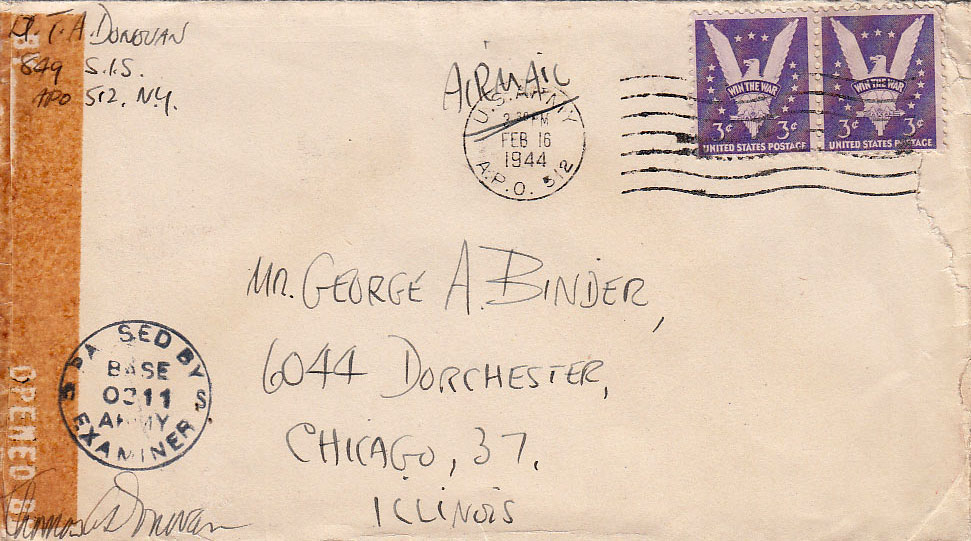 Lt. T. A. DONOVAN
849 S.I.S.
APO 512. N.Y.
AIRMAIL
U.S. ARMY
PM
FEB 16
1944
A.P.O. 512
WIN THE WAR
3¢ 3¢
UNITED STATES POSTAGE
WIN THE WAR
3¢ 3¢
UNITED STATES POSTAGE
MR. GEORGE A. BINDER,
6044 DORCHESTER,
CHICAGO, 37.
ILLINOIS
PASSED BY
BASE
ARMY
EXAMINER
OPENED B
Thomas A Donovan